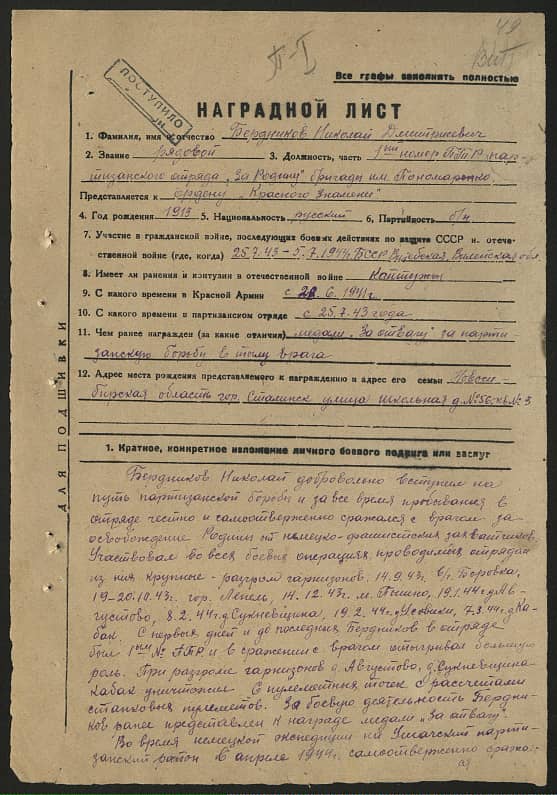 49
П-I
Вит
Все графы заполнять полностью
ПОСТУПИЛО
НАГРАДНОЙ ЛИСТ
1. Фамилия, имя и отчество Бердников Николай Дмитриевич
2. Звание рядовой 3. Должность, часть 1ый номер ПТР пар-
тизанского отряда "За Родину" бригады им. Пономаренко
Представляется к ордену "Красного Знамени"
4. Год рождения 1913 5. Национальность русский 6. Партийность б/п
7. Участие в гражданской войне, последующих боевых действиях по защите СССР и отече-
ственной войне (где, когда) 25.7.43-5.7.1944г. БССР Витебская, Вилейская обл.
8. Имеет ли ранения и контузии в отечественной войне
9. С какого времени в Красной Армии с 22.6.1941г
10. С какого времени в партизанском отряде с 25.7.43 года
11. Чем ранее награжден (за какие отличия) медаль "За отвагу" за парти-
занскую борьбу в тылу врага
12. Адрес места рождения представляемого к награждению и адрес его семьи Новоси-
бирская область гор. Сталинск улица Школьная д.№56, кв.№3
ДЛЯ ПОДШИВКИ
1. Краткое, конкретное изложение личного боевого подвига или заслуг
Бердников Николай добровольно вступил на
путь партизанской борьбы и за все время пребывания в
отряде честно и самоотверженно сражался с врагом за
освобождение Родины от немецко-фашистских захватчиков.
Участвовал во всех боевых операциях, проводимых отрядом
из них крупные - разгром гарнизонов. 14.9.43 Боровка,
19-20.10.43г. гор. Лепель, 14.12.43г. м. Пышно, 19.1.44г. д. Ав-
густово, 8.2.44г. д. Сукневщина, 19.2.44г. д. 7.3.44г. д. Ка-
бак. С первых дней и до последних Бердников в отряде
был 1ым № ПТР и в сражении с врагом отыгривал большую
роль. При разгроме гарнизонов д. Августово, д. Сукневщина
Кабак уничтожил 6 пулеметных точек с рассчетами
станковых пулеметов. За боевую деятельность Бердни-
ков ранее представлен к награде медали "За отвагу".
Во время немецкой экспедиции на Ушачский парти-
занский район в апреле 1944г. самоотверженно сража-